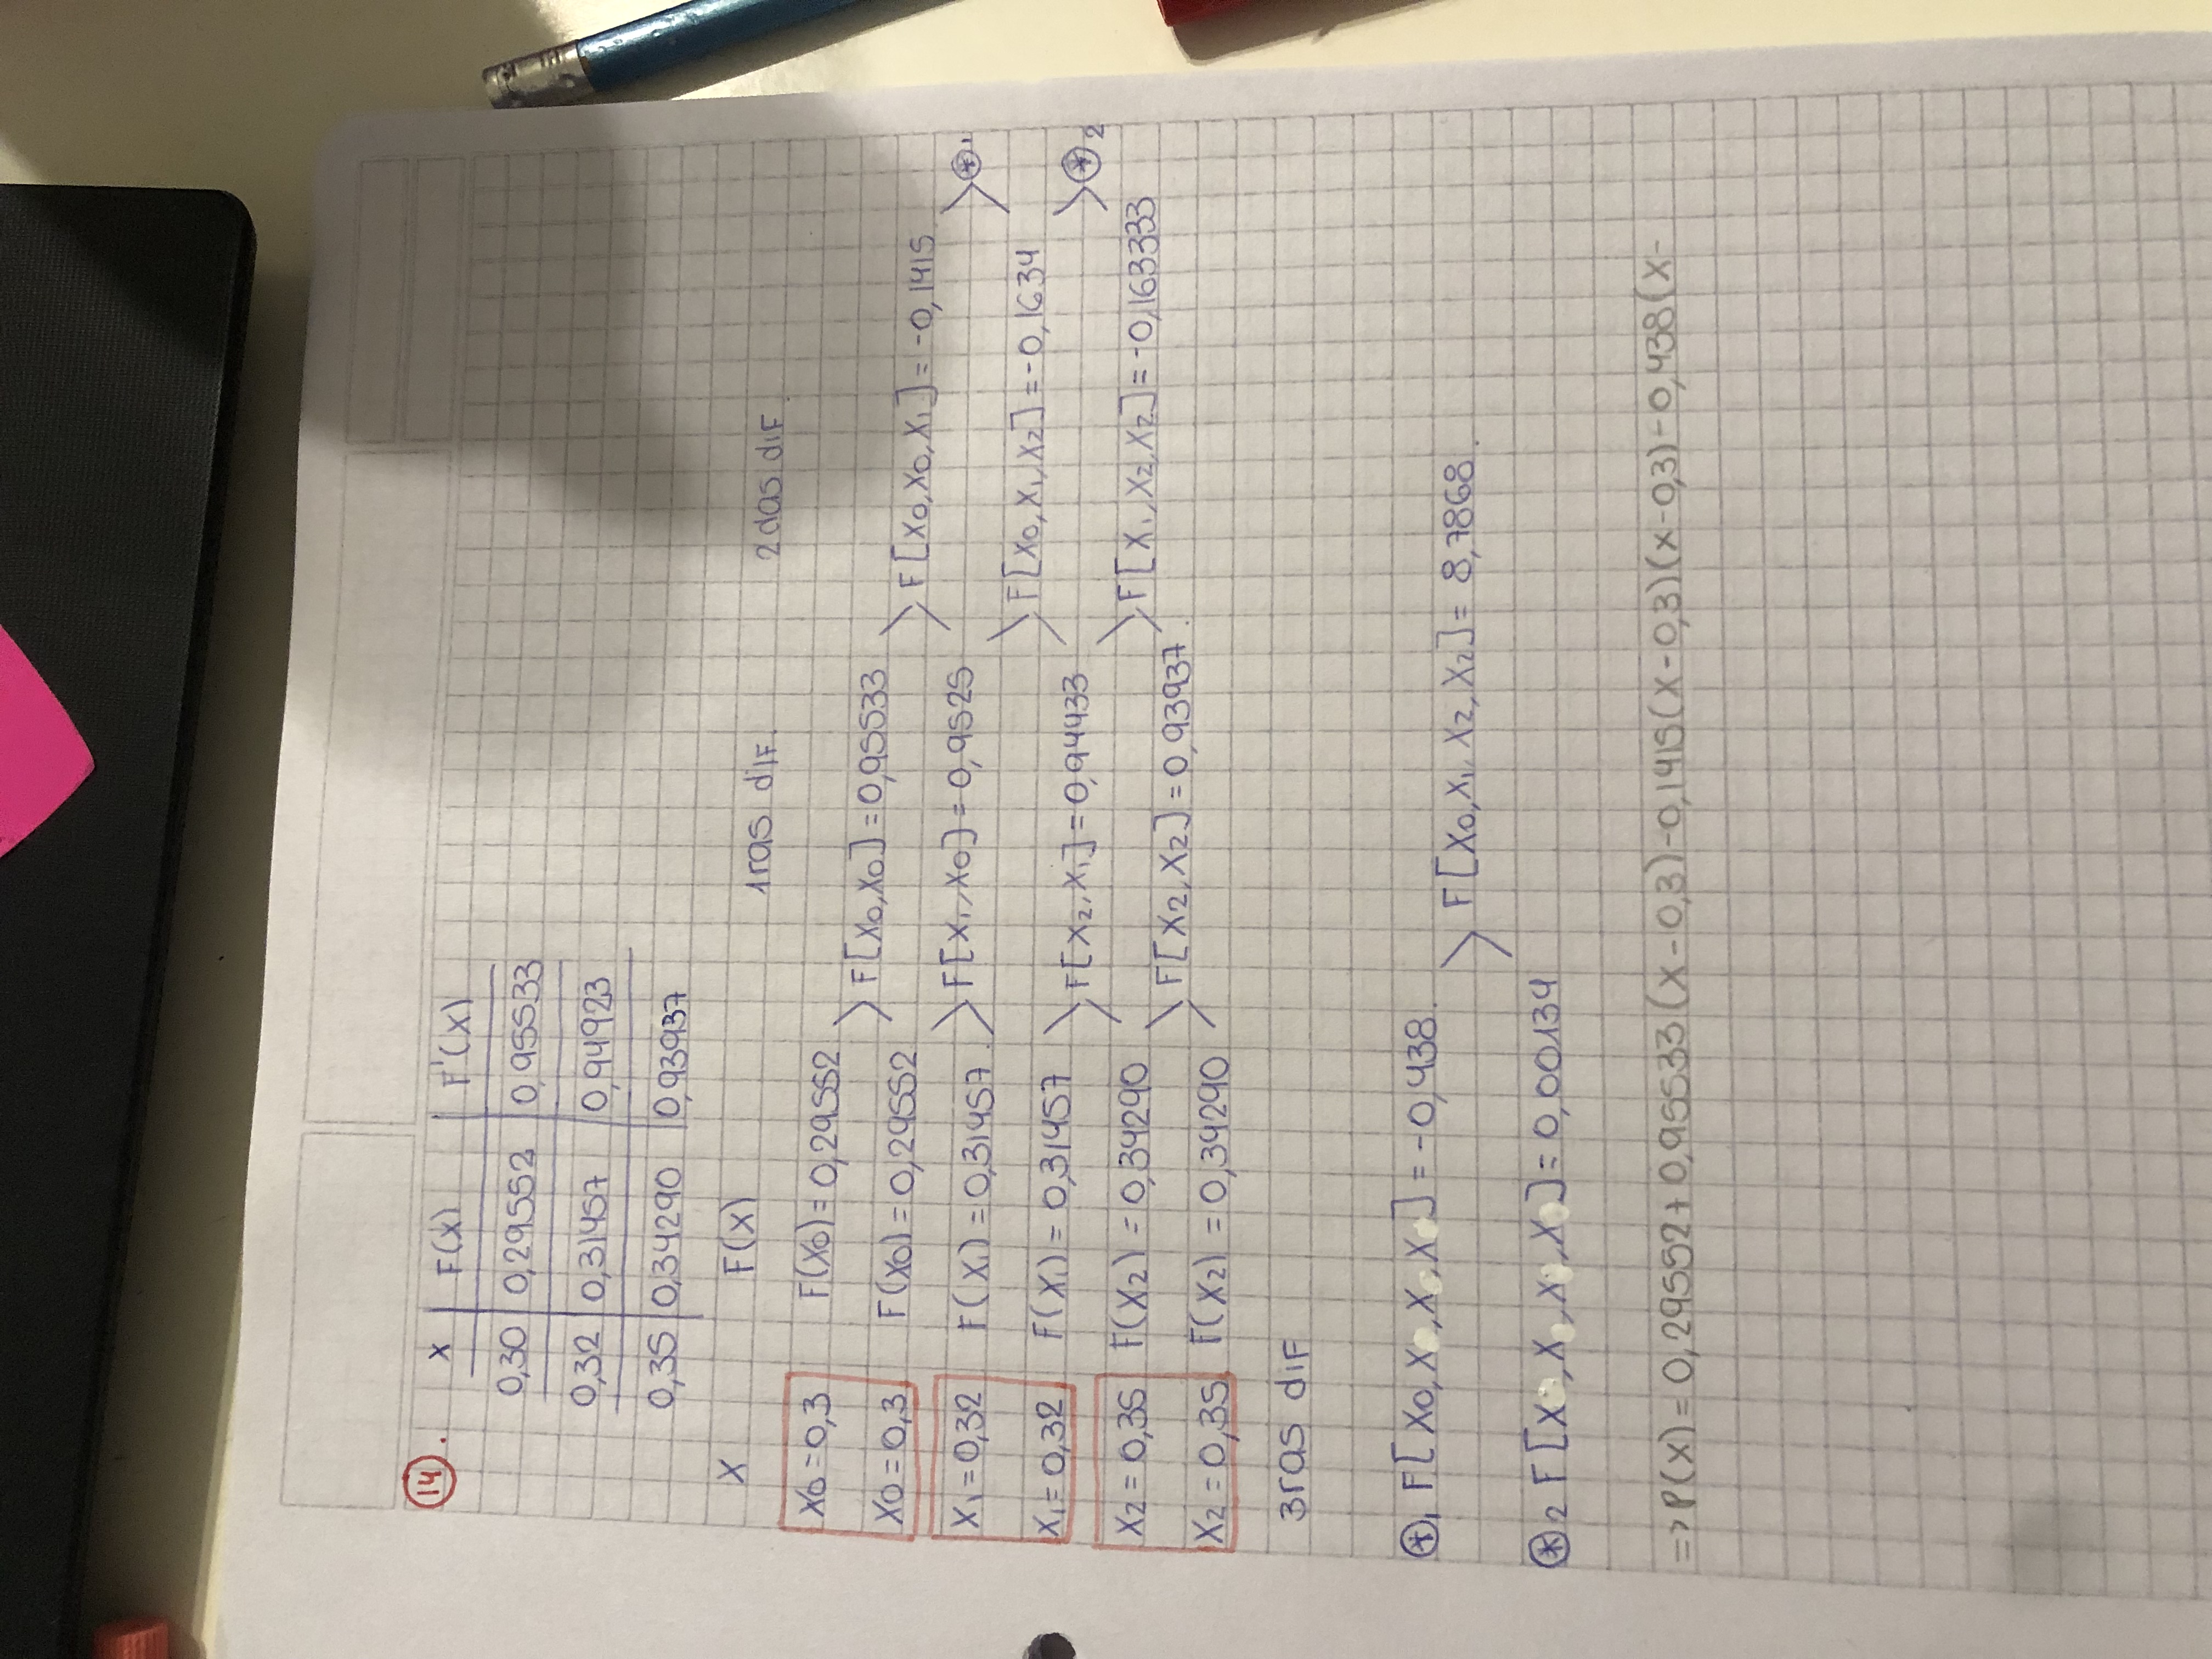 14.
x F(x) F'(x)
0,30 0,29552 0,95533
0,32 0,31457 0,94923
0,35 0,34290 0,93937
X F(x) 1ras. dIF. 2das dIF.
X0=0,3 F(X0)=0,29552
F[X0,X0]=0,95533
X0=0,3 F(X0)=0,29552 F[X0,X0,X1]=-0,1415
F[X1,X0]=0,9525 *1
X1=0,32 F(X1)=0,31457 F[X0,X1,X2]=-0,1634
X1=0,32 F(X1)=0,31457 F[X2,X1]=0,94433 *2
X2=0,35 F(X2)=0,34290 F[X1,X2,X2]=-0,163333
F[X2,X2]=0,93937
X2=0,35 F(X2)=0,34290
3ras dIF
*1 F[X0,X,X,X]=-0,438. F[X0,X1,X2,X2]=8,7868.
*2 F[X,X,X,X]=0,00134
=> P(x)=0,29552+0,95533(x-0,3)-0,1415(x-0,3)(x-0,3)-0,438(x-